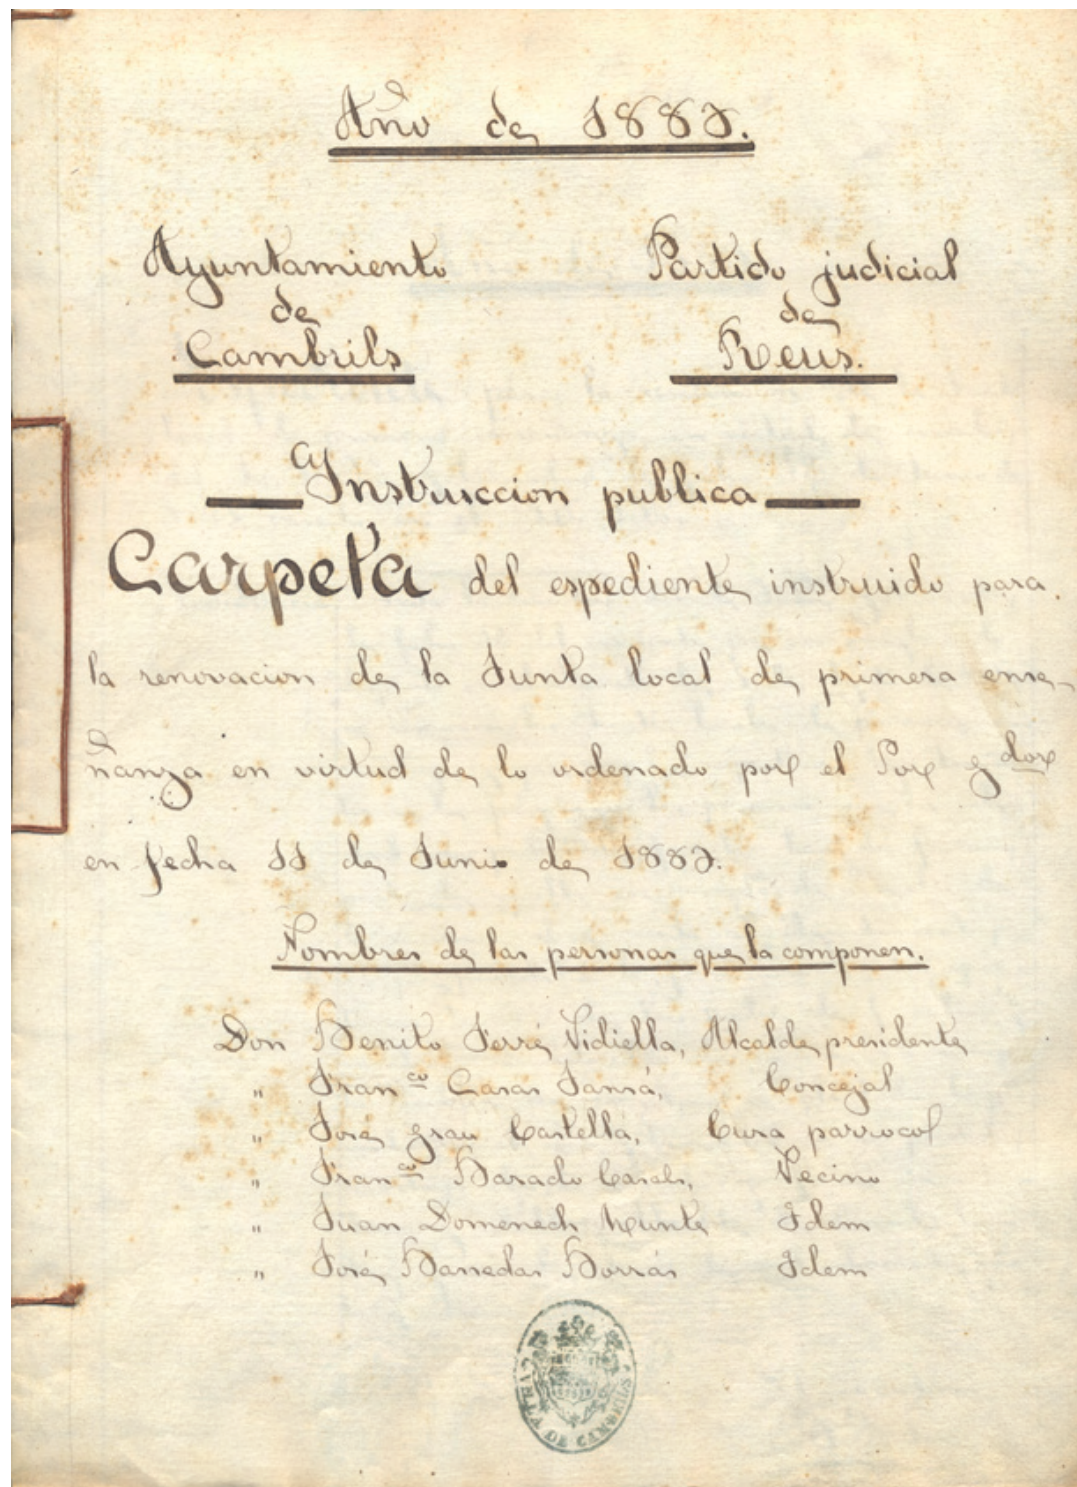 Año de 1887.
Ayuntamiento
de
Cambrils
Partido judicial
de
Reus.
Instruccion publica
Carpeta del espediente instruido para
la renovacion de la Junta local de primera ense-
ñanza en virtud de lo ordenado por el Por g dor
en fecha 11 de Junio de 1887.
Nombres de las personas que la componen.
Don Benito Ferré Vidiella, Alcalde presidente
" Fran co Casas Sansá, Concejal
" José grau Castellá, Cura parrocol
" Fran co Barado Casals, Vecino
" Juan Domenech Munte Idem
" José Banedas Borrás Idem
VILLA DE CAMBRILS